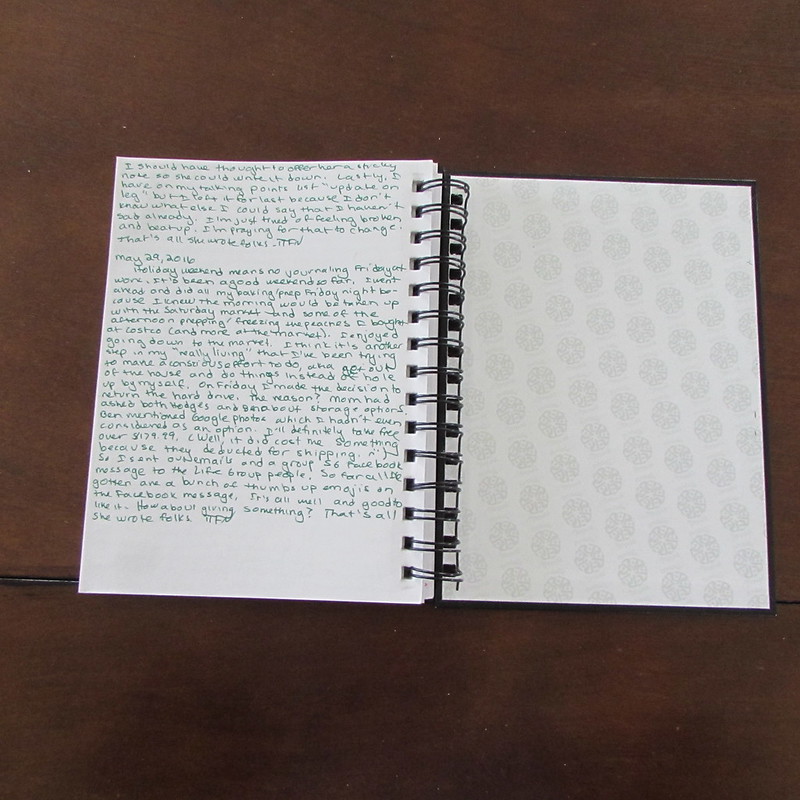 I should have thought to offer her a sticky
note so she could write it down. Lastly, I
have on my talking points list "update on
leg" but I left it for last because I don't
know what else I could say that I haven't
said already. I'm just tired of feeling broken
and beat up. I'm praying for that to change.
That's all she wrote folks. TFN
May 29, 2016
Holiday weekend means no journaling Friday at
work. It's been a good weekend so far. I went
ahead and did all my baking/prep Friday night be-
cause I knew the morning would be taken up
with the Saturday market and some of the
afternoon prepping/freezing the peaches I bought
at costco (and more at the market). I enjoyed
going down to the market. I think it's another
step in my "really living" that I've been trying
to make a conscious effort to do, aka get out
of the house and do things instead of hole
up by myself. On Friday I made the decision to
return the hard drive. The reason? Mom had
asked both Hodges and Ben about storage options
Ben mentioned Google Photos which I hadn't even
considered as an option. I'll definitely take free
over $179.99. (Well, it did cost me something
because they deducted for shipping.
So I sent out emails and a group Facebook
message to the Life Group people. So far all I've
gotten are a bunch of thumbs up emojis on
the Facebook message. It's all well and good to
like it. How about giving something? That's all
she wrote folks. TFN